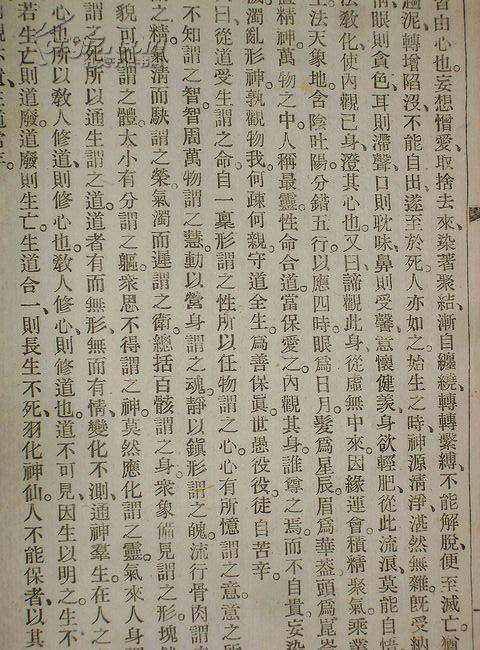 皆由心也。妄想憎愛、取捨去來、染著聚結、漸自纏繞、轉轉繫縛、不能解脫、便至滅亡。猶
趨泥、轉增陷沒、不能自出、遂至於死。人亦如之。始生之時、神源清淨、湛然無雜。既受納
情。眼則貪色、耳則滯聲、口則耽味、鼻則受馨、意懷健羨、身欲輕肥、從此流浪、莫能自悟
法教化、使內觀己身、澄其心也。又曰、諦觀此身、從虛無中來。因緣運會、積精聚氣、乘業
生。法天象地、含陰吐陽、分錯五行、以應四時。眼爲日月、髮爲星辰、眉爲華蓋、頭爲崑
置精神。萬物之中、人稱最靈。性命合道、當保愛之。內觀其身、誰尊之焉。而不自貴、妄染
濁亂形神。孰觀物我、何疎何親。守道全生、爲善保眞。世愚役役、徒自苦辛。
曰、從道受生謂之命、自一稟形謂之性、所以任物謂之心、心有所憶謂之意、意之所
不知謂之智、智周萬物謂之慧、動以營身謂之魂、靜以鎭形謂之魄、流行骨肉謂
精。氣清而駃謂之榮、氣濁而遲謂之衛、總括百骸謂之身、衆象備見謂之形、塊
貌可則謂之體、大小有分謂之軀、衆思不得謂之神、莫然應化謂之靈、氣來人身
謂之死、所以通生謂之道。道者、有而無形、無而有情、變化不測、通神羣生、在人之
心也。所以敎人修道、則修心也。敎人修心、則修道也。道不可見、因生以明之。生不
若生亡則道廢、道廢則生亡。生道合一、則長生不死、羽化神仙。人不能保者、以其